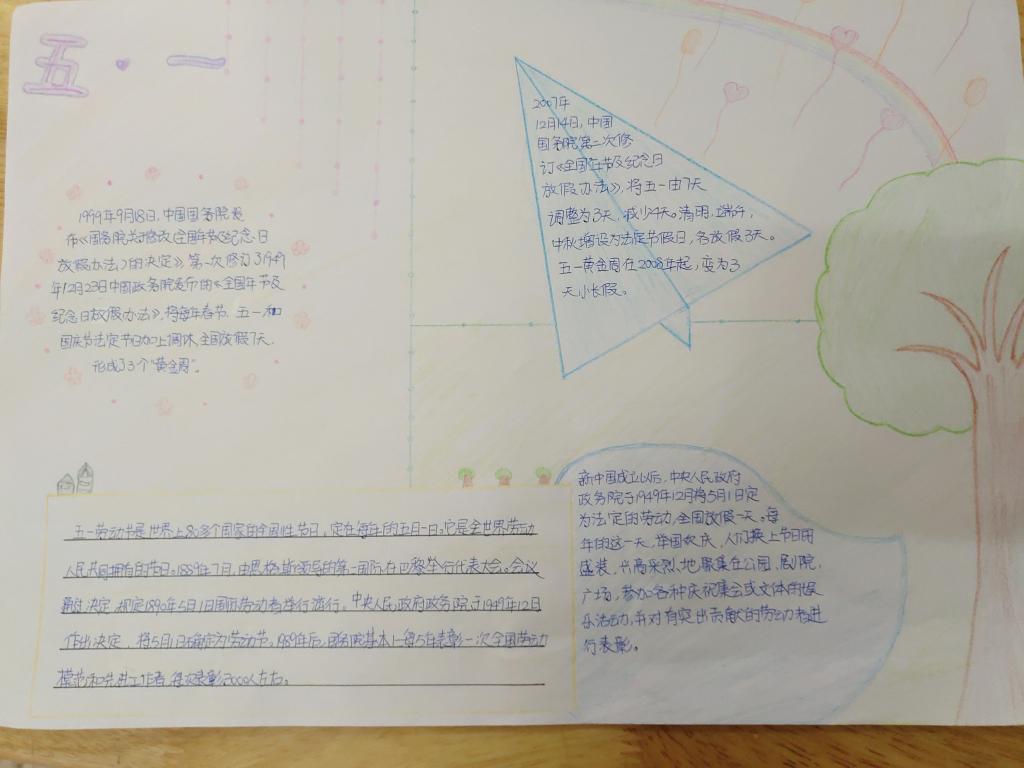 五·一
1999年9月18日,中国国务院发
布《国务院关于修改〈全国年节及纪念日
放假办法〉的决定》,第一次修订了1949
年12月23日中国政务院发布的《全国年节及
纪念日放假办法》,将每年春节、五一和
国庆节法定节日加上调休,全国放假7天.
形成了3个"黄金周"。
2007年
12月14日,中国
国务院第二次修
订《全国年节及纪念日
放假办法》,将五一由7天
调整为3天,减少4天。清明,端午,
中秋增设为法定节假日,各放假3天。
五一黄金周在2008年起,变为3
天小长假。
五一劳动节是世界上80多个国家的全国性节日,定在每年的五月一日。它是全世界劳动
人民共同拥有的节日。1889年7月,由恩格斯领导的第二国际在巴黎举行代表大会。会议
通过决定,规定1890年5月1日国际劳动者举行游行。中央人民政府政务院于1949年12月
作出决定,将5月1日确定为劳动节。1989年后,国务院基本上每5年表彰一次全国劳动
模范和先进工作者,每次表彰3000人左右。
新中国成立以后,中央人民政府
政务院于1949年12月将5月1日定
为法定的劳动,全国放假一天。每
年的这一天,举国欢庆,人们换上节日的
盛装,兴高采烈地聚集在公园,剧院,
广场,参加各种庆祝集会或文体的娱
乐活动,并对有突出贡献的劳动者进
行表彰。